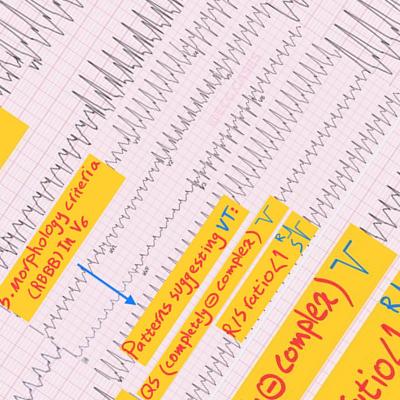 5. morphology criteria
(RBBB) In V6
Patterns suggesting VT:
QS (completely ⊖ complex)
R/S ratio <1 R
S
⊖ complex)